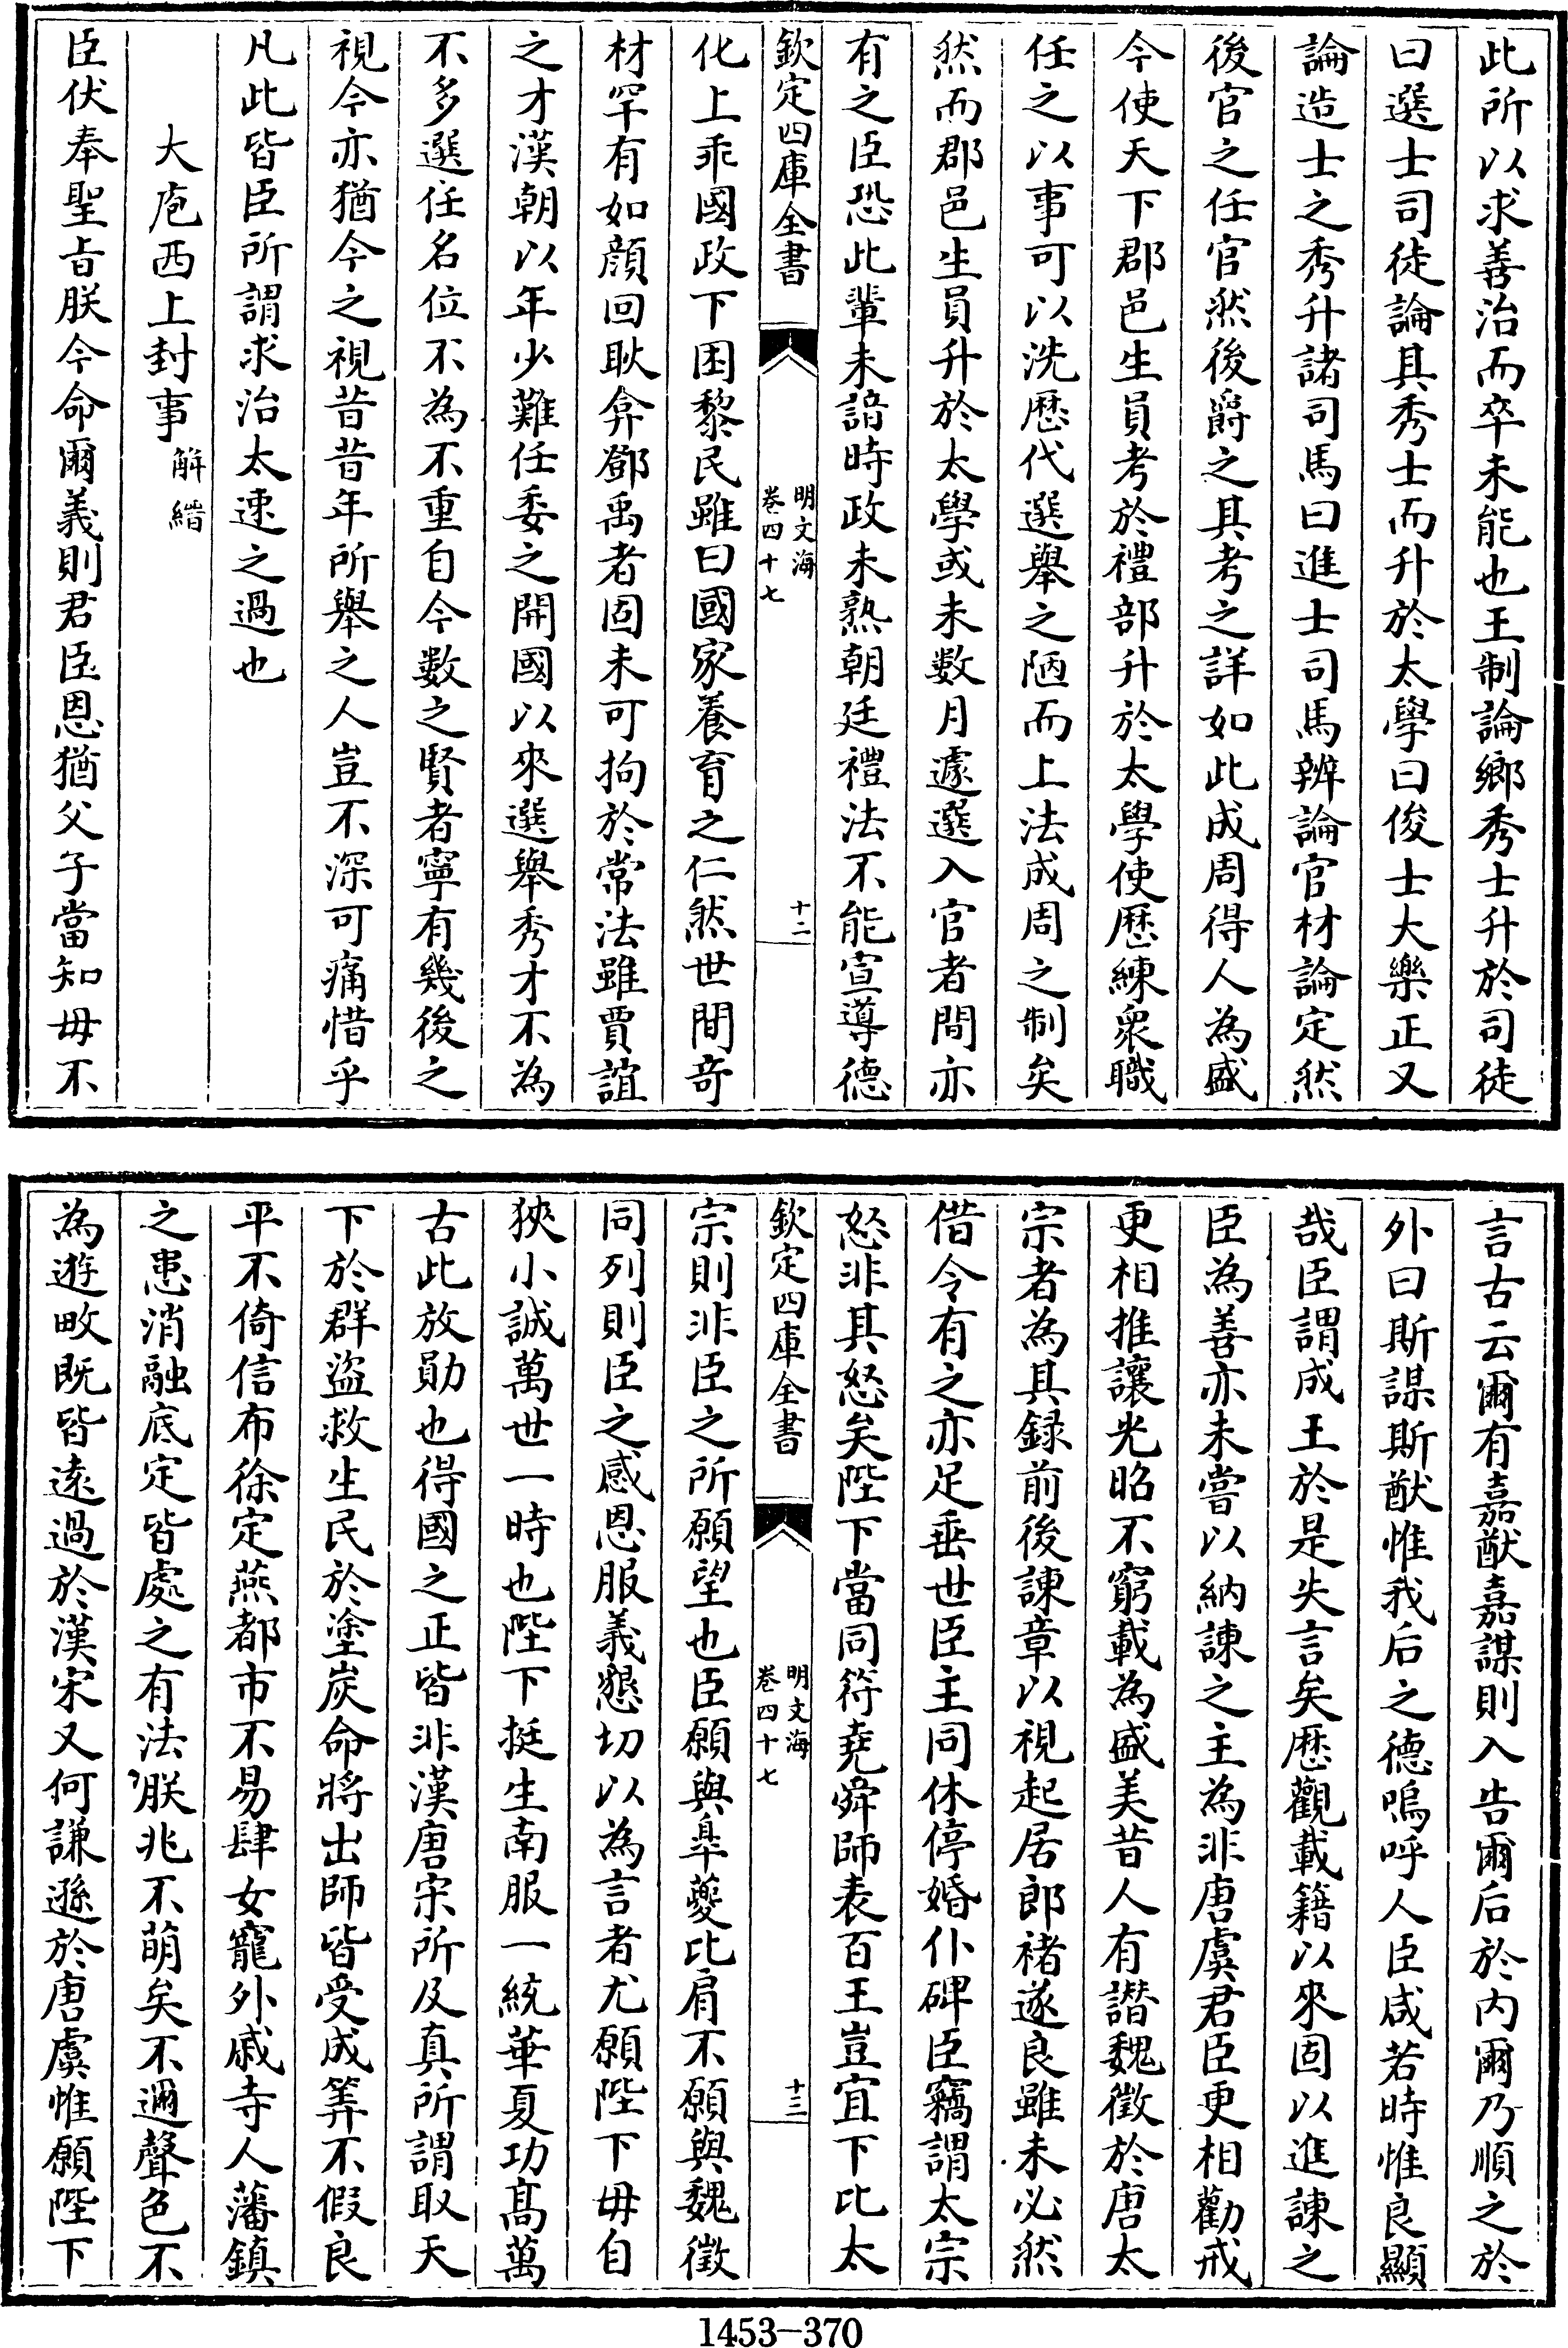 此所以求善治而卒未能也王制論鄉秀士升於司徒
曰選士司徒論其秀士而升於太學曰俊士大樂正又
論造士之秀升諸司馬曰進士司馬辨論官材論定然
後官之任官然後爵之其考之詳如此成周得人為盛
今使天下郡邑生員考於禮部升於太學使歷練衆職
任之以事可以洗歷代選舉之陋而上法成周之制矣
然而郡邑生員升於太學或未數月遽選入官者間亦
有之臣恐此輩未諳時政未熟朝廷禮法不能宣導德
欽定四庫全書
明文海
卷四十七
十二
化上乖國政下困黎民雖曰國家養育之仁然世間奇
材罕有如顔回耿弇鄧禹者固未可拘於常法雖賈誼
之才漢朝以年少難任委之開國以來選舉秀才不為
不多選任名位不為不重自今數之賢者寧有幾後之
視今亦猶今之視昔昔年所舉之人豈不深可痛惜乎
凡此皆臣所謂求治太速之過也
大庖西上封事
解縉
臣伏奉聖旨朕今命爾義則君臣恩猶父子當知毋不
言古云爾有嘉猷嘉謀則入告爾后於内爾乃順之於
外曰斯謀斯猷惟我后之德嗚呼人臣咸若時惟良顯
哉臣謂成王於是失言矣歷觀載籍以來固以進諫之
臣為善亦未嘗以納諫之主為非唐虞君臣更相勸戒
更相推讓光昭不窮載為盛美昔人有譖魏徵於唐太
宗者為其録前後諫章以視起居郎褚遂良雖未必然
借令有之亦足垂世臣主同休停婚仆碑臣竊謂太宗
怒非其怒矣陛下當同符堯舜師表百王豈宜下比太
欽定四庫全書
明文海
卷四十七
十三
宗則非臣之所願望也臣願與臯夔比肩不願與魏徵
同列則臣之感恩服義懇切以為言者尤願陛下毋自
狹小誠萬世一時也陛下挺生南服一統華夏功高萬
古此放勛也得國之正皆非漢唐宋所及真所謂取天
下於群盜救生民於塗炭命將出師皆受成筭不假良
平不倚信布徐定燕都市不易肆女寵外戚寺人藩鎮
之患消融底定皆處之有法朕兆不萌矣不邇聲色不
為遊畋既皆遠過於漢宋又何謙遜於唐虞惟願陛下
1453—370